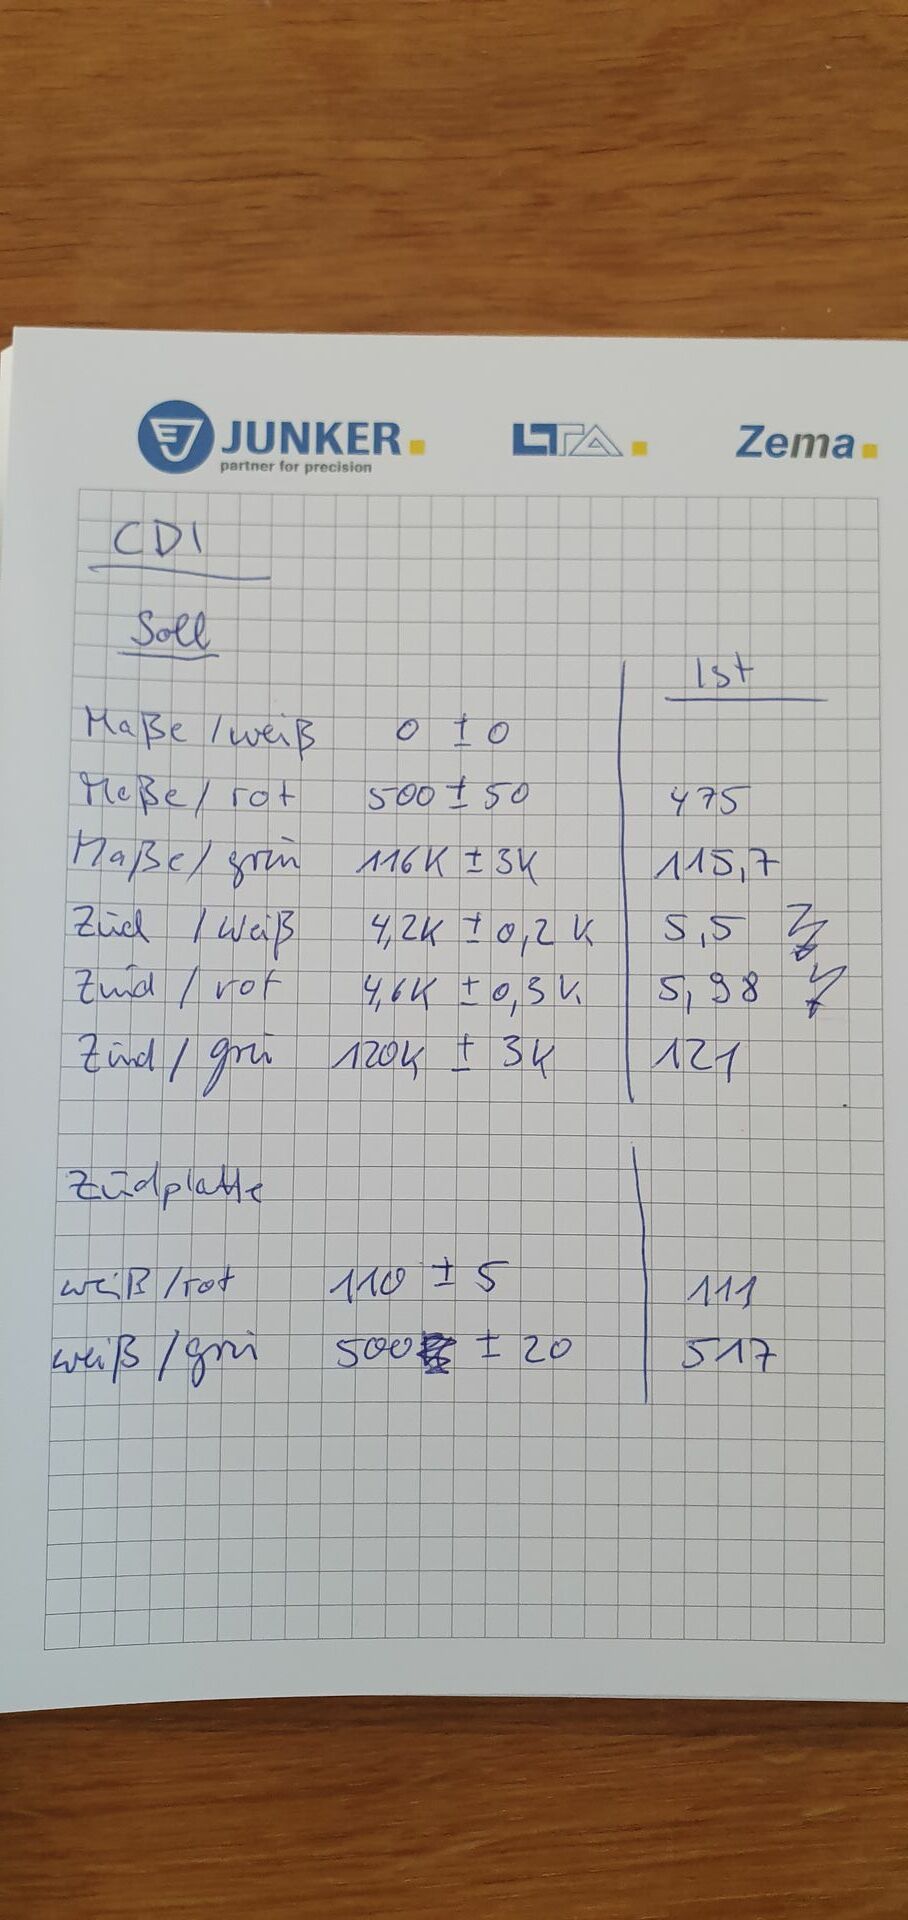 JUNKER LTA Zema
partner for precision
CDI
Soll
Ist
Maße / weiß 0 ± 0
Maße / rot 500 ± 50 475
Maße / grün 116K ± 3K 115,7
Zünd / weiß 4,2K ± 0,2K 5,5
Zünd / rot 4,6K ± 0,3K 5,98
Zünd / grü 120K ± 3K 121
Zündplatte
weiß / rot 110 ± 5 111
weiß / grü 500 ± 20 517